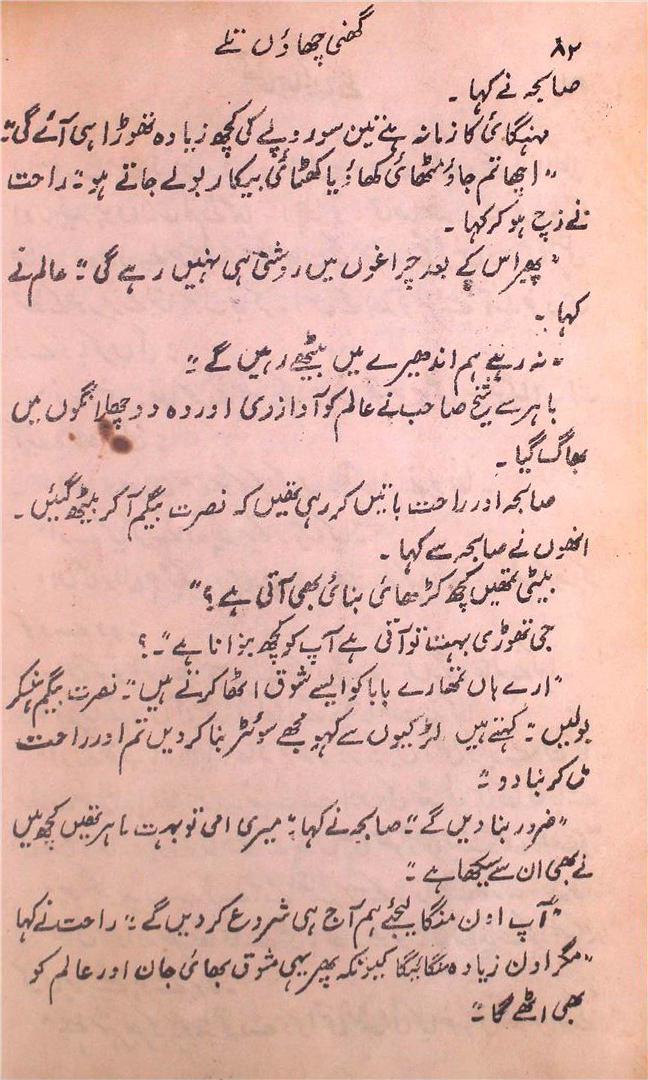 ۸۲ گھنی چھاؤں تلے
صابحہ نے کہا ۔
مہنگائی کا زمانہ ہے تین سو روپے کی کچھ زیادہ تھوڑا ہی آئے گی"۔
"اچھا تم جاؤ مٹھائی کھاؤ یا کھٹائی بیکار بولے جاتے ہو"۔ راحت
نے زچ ہو کر کہا ۔
"پھر اس کے بعد چراغوں میں روشنی ہی نہیں رہے گی"۔ عالم نے
کہا ۔
"نہ رہے ہم اندھیرے میں بیٹھے رہیں گے"۔
باہر سے شیخ صاحب نے عالم کو آواز دی اور وہ دو چھلانگوں میں
بھاگ گیا ۔
صابحہ اور راحت باتیں کر رہی تھیں کہ نصرت بیگم آ کر بیٹھ گئیں ۔
انھوں نے صابحہ سے کہا ۔
بیٹی تمھیں کچھ کڑھائی بنائی بھی آتی ہے ؟"
جی تھوڑی بہت تو آتی ہے آپ کو کچھ بنوانا ہے"۔ ؟
"ارے ہاں تمھارے بابا کو ایسے شوق اٹھا کرتے ہیں"۔ نصرت بیگم ہنسکر
بولیں"۔ کہتے ہیں لڑکیوں سے کہو مجھے سوئٹر بنا کر دیں تم اور راحت
مل کر بنا دو"۔
"ضرور بنا دیں گے"۔ صابحہ نے کہا"۔ میری امی تو بہت ماہر تھیں کچھ میں
نے بھی ان سے سیکھا ہے"۔
"آپ اون منگا لیجئے ہم آج ہی شروع کر دیں گے"۔ راحت نے کہا
"مگر اون زیادہ منگائیگا کیونکہ پھر یہی شوق بھائی جان اور عالم کو
بھی اٹھے گا"۔